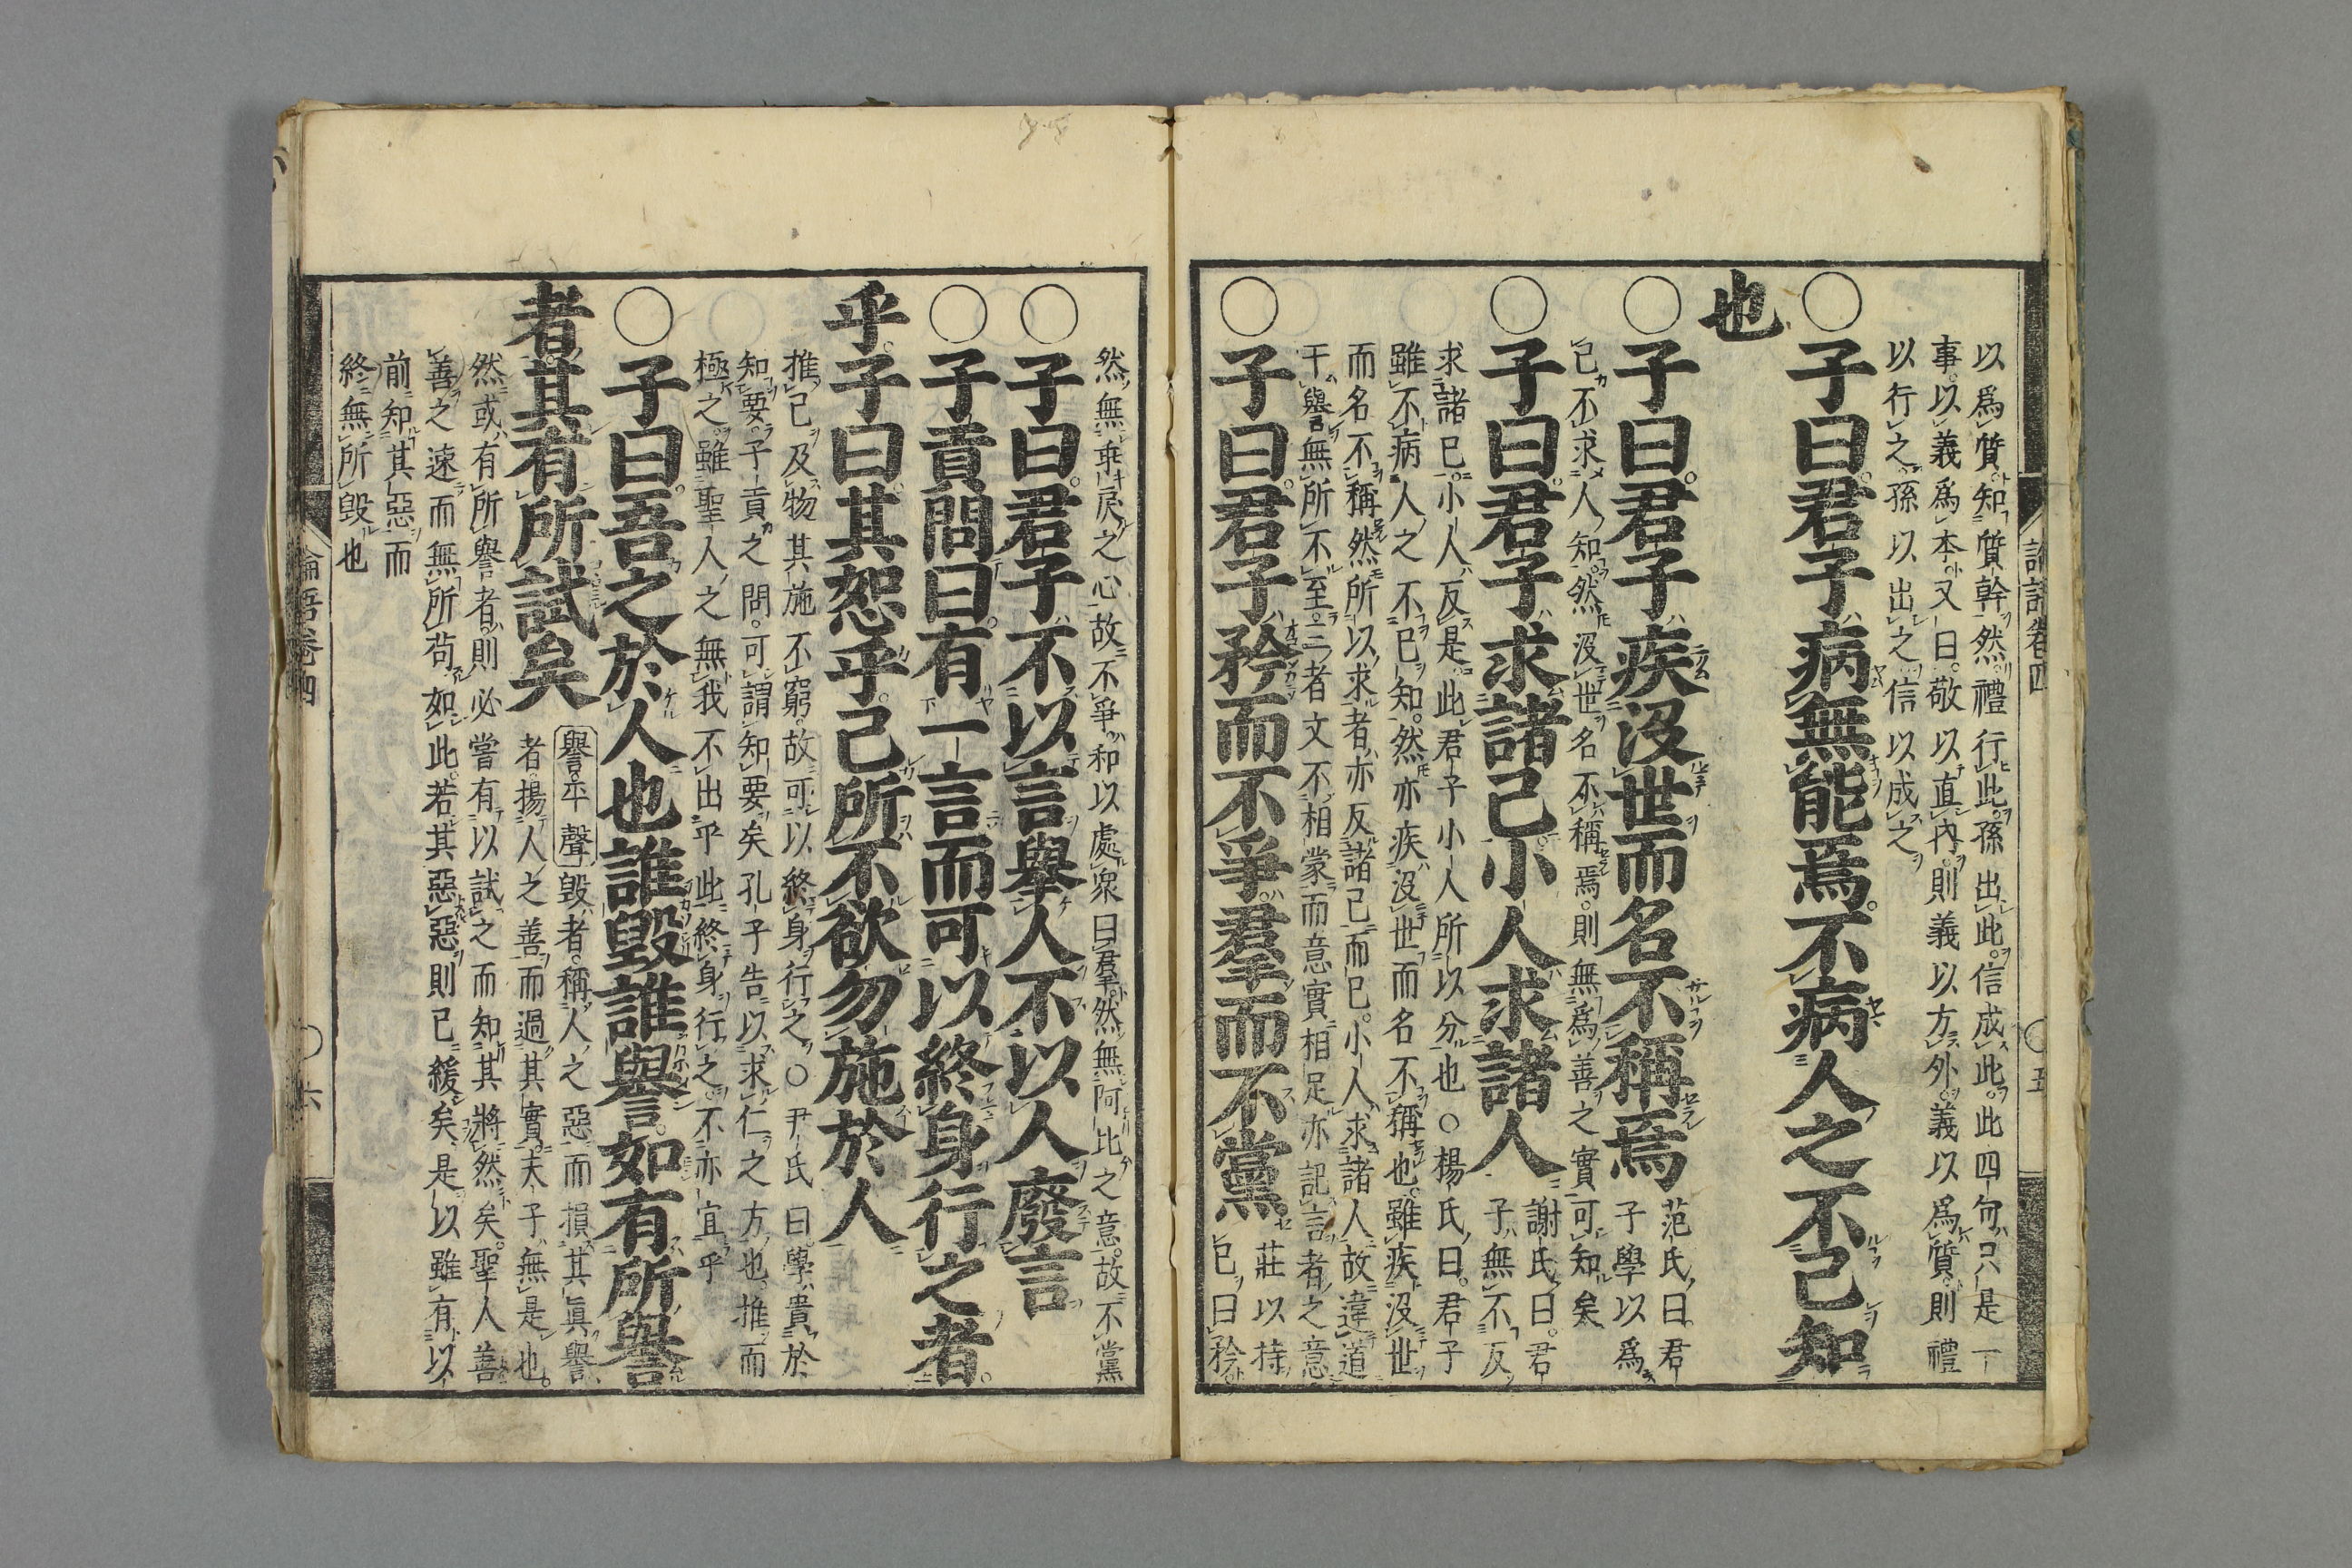 以爲質知質幹然禮行此孫出此信成此此四句只是一
事以義爲本又曰敬以直內則義以方外義以爲質則禮
以行之孫以出之信以成之
○子曰君子病無能焉不病人之不己知
也
○子曰君子疾沒世而名不稱焉
范氏曰君
子學以爲
己不求人知然沒世名不稱焉則無爲善之實可知矣
○子曰君子求諸己小人求諸人
謝氏曰君
子無不反
求諸己小人反是此君子小人所以分也○楊氏曰君子
雖不病人之不已知然亦疾沒世而名不稱也雖疾沒世
而名不稱然所以求者亦反諸己而已小人求諸人故違道
干譽無所不至三者文不相蒙而意實相足亦記言者之意
○子曰君子矜而不爭羣而不黨
莊以持
已曰矜
然無乖戾之心故不爭和以處衆曰羣然無阿比之意故不黨
○子曰君子不以言擧人不以人廢言
○子貢問曰有一言而可以終身行之者
乎子曰其恕乎己所不欲勿施於人
推己及物其施不窮故可以終身行之○尹氏曰學貴於
知要子貢之問可謂知要矣孔子告以求仁之方也推而
極之雖聖人之無我不出乎此終身行之不亦宜乎
○子曰吾之於人也誰毀誰譽如有所譽
者其有所試矣
譽平聲毀者稱人之惡而損其眞譽
者揚人之善而過其實夫子無是也
然或有所譽者則必當有以試之而知其將然矣聖人善
善之速而無所苟如此若其惡惡則已緩矣是以雖有以
前知其惡而
終無所毀也
論語卷四
○五
論語卷四
○六